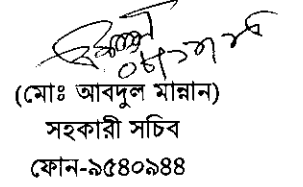 (মোঃ আবদুল মান্নান)
সহকারী সচিব
ফোন-৯৫৪০৯৪৪